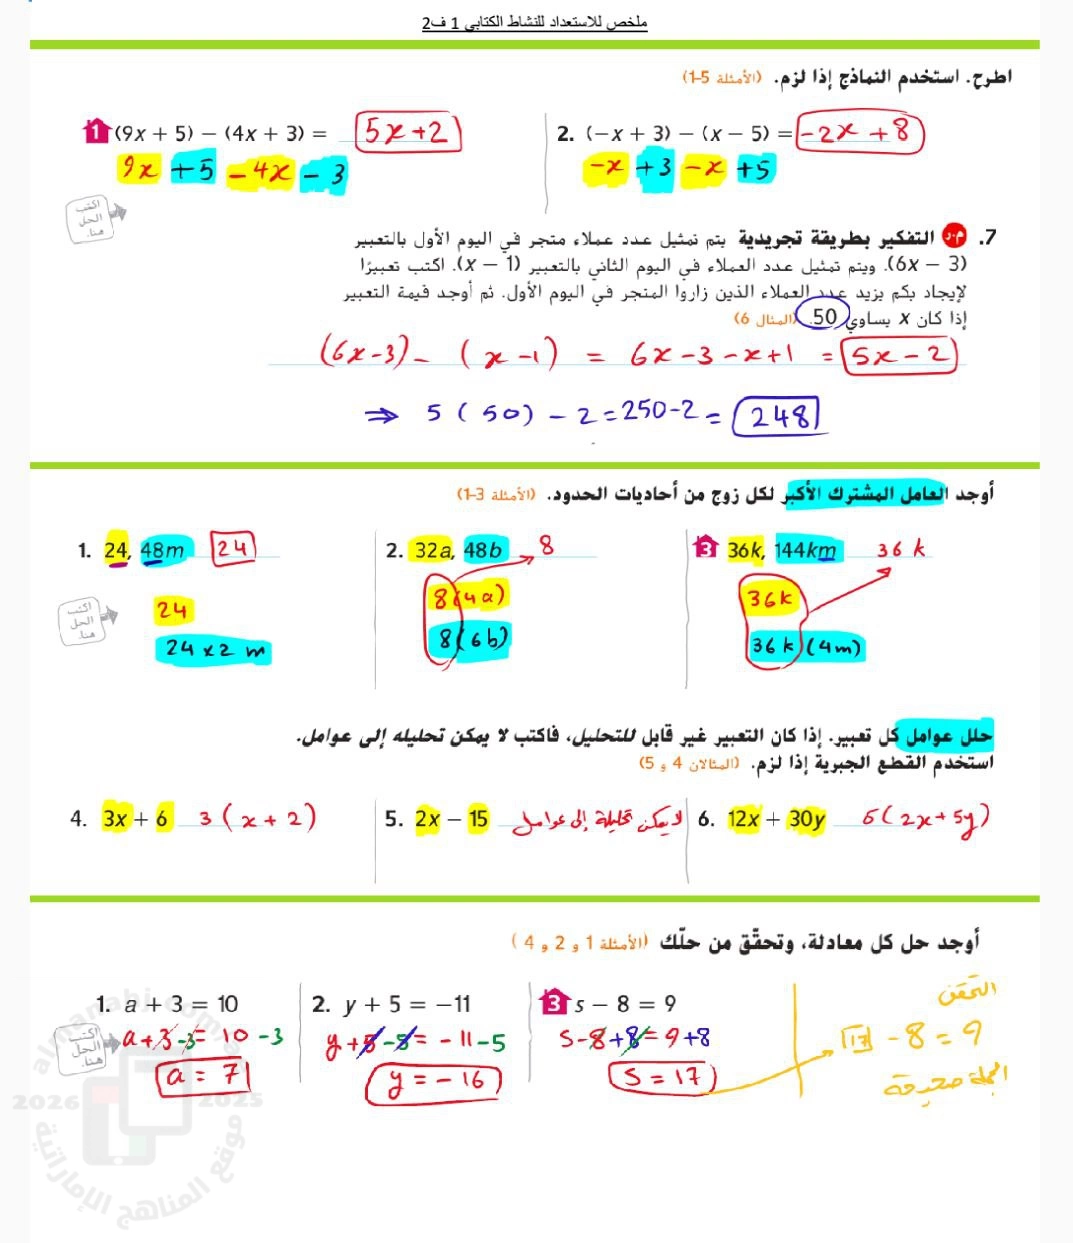 ملخص للاستعداد للنشاط الكتابي 1 ف2
اطرح. استخدم النماذج إذا لزم. (الأمثلة 5-1)
1 (9x + 5) − (4x + 3) = 5x + 2
9x + 5 − 4x − 3
2. (−x + 3) − (x − 5) = −2x + 8
−x + 3 − x + 5
اكتب الحل هنا.
7. م.ر التفكير بطريقة تجريدية يتم تمثيل عدد عملاء متجر في اليوم الأول بالتعبير
(6x − 3). ويتم تمثيل عدد العملاء في اليوم الثاني بالتعبير (x − 1). اكتب تعبيرًا
لإيجاد بكم يزيد عدد العملاء الذين زاروا المتجر في اليوم الأول. ثم أوجد قيمة التعبير
إذا كان x يساوي 50. (المثال 6)
(6x − 3) − (x − 1) = 6x − 3 − x + 1 = 5x − 2
⇒ 5 (50) − 2 = 250 − 2 = 248
أوجد العامل المشترك الأكبر لكل زوج من أحاديات الحدود. (الأمثلة 3-1)
1. 24, 48m 24
24
24 x 2 m
اكتب الحل هنا.
2. 32a, 48b 8
8(4a)
8(6b)
3 36k, 144km 36 k
36k
36 k (4m)
حلل عوامل كل تعبير. إذا كان التعبير غير قابل للتحليل، فاكتب لا يمكن تحليله إلى عوامل.
استخدم القطع الجبرية إذا لزم. (المثالان 4 و 5)
4. 3x + 6 3 (x + 2)
5. 2x − 15 لا يمكن تحليله إلى عوامل
6. 12x + 30y 6(2x + 5y)
أوجد حل كل معادلة، وتحقّق من حلّك (الأمثلة 1 و 2 و 4)
1. a + 3 = 10
a + 3 − 3 = 10 − 3
a = 7
اكتب الحل هنا.
2. y + 5 = −11
y + 5 − 5 = − 11 − 5
y = − 16
3 s − 8 = 9
s − 8 + 8 = 9 + 8
s = 17
التحقق
17 − 8 = 9
الجملة صحيحة
almanahj.com
2026 2025
موقع المناهج الإماراتية